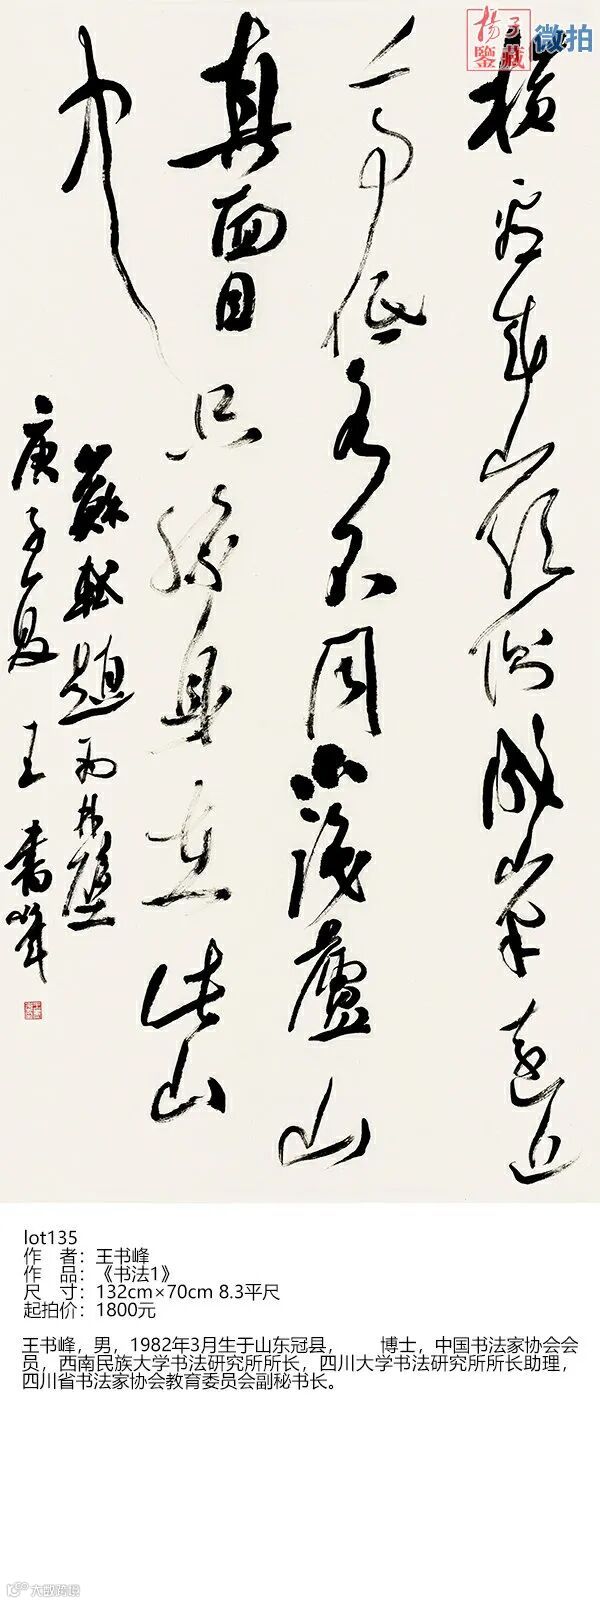 揚子
鑒藏
微拍
横看成嶺側成峯遠近
高低各不同不識廬山
真面目只緣身在此山
中
蘇軾題西林壁
庚子夏 王書峯
lot135
作 者：王书峰
作 品：《书法1》
尺 寸：132cm×70cm 8.3平尺
起拍价：1800元
王书峰，男，1982年3月生于山东冠县， 博士，中国书法家协会会
员，西南民族大学书法研究所所长，四川大学书法研究所所长助理，
四川省书法家协会教育委员会副秘书长。
大数跨境